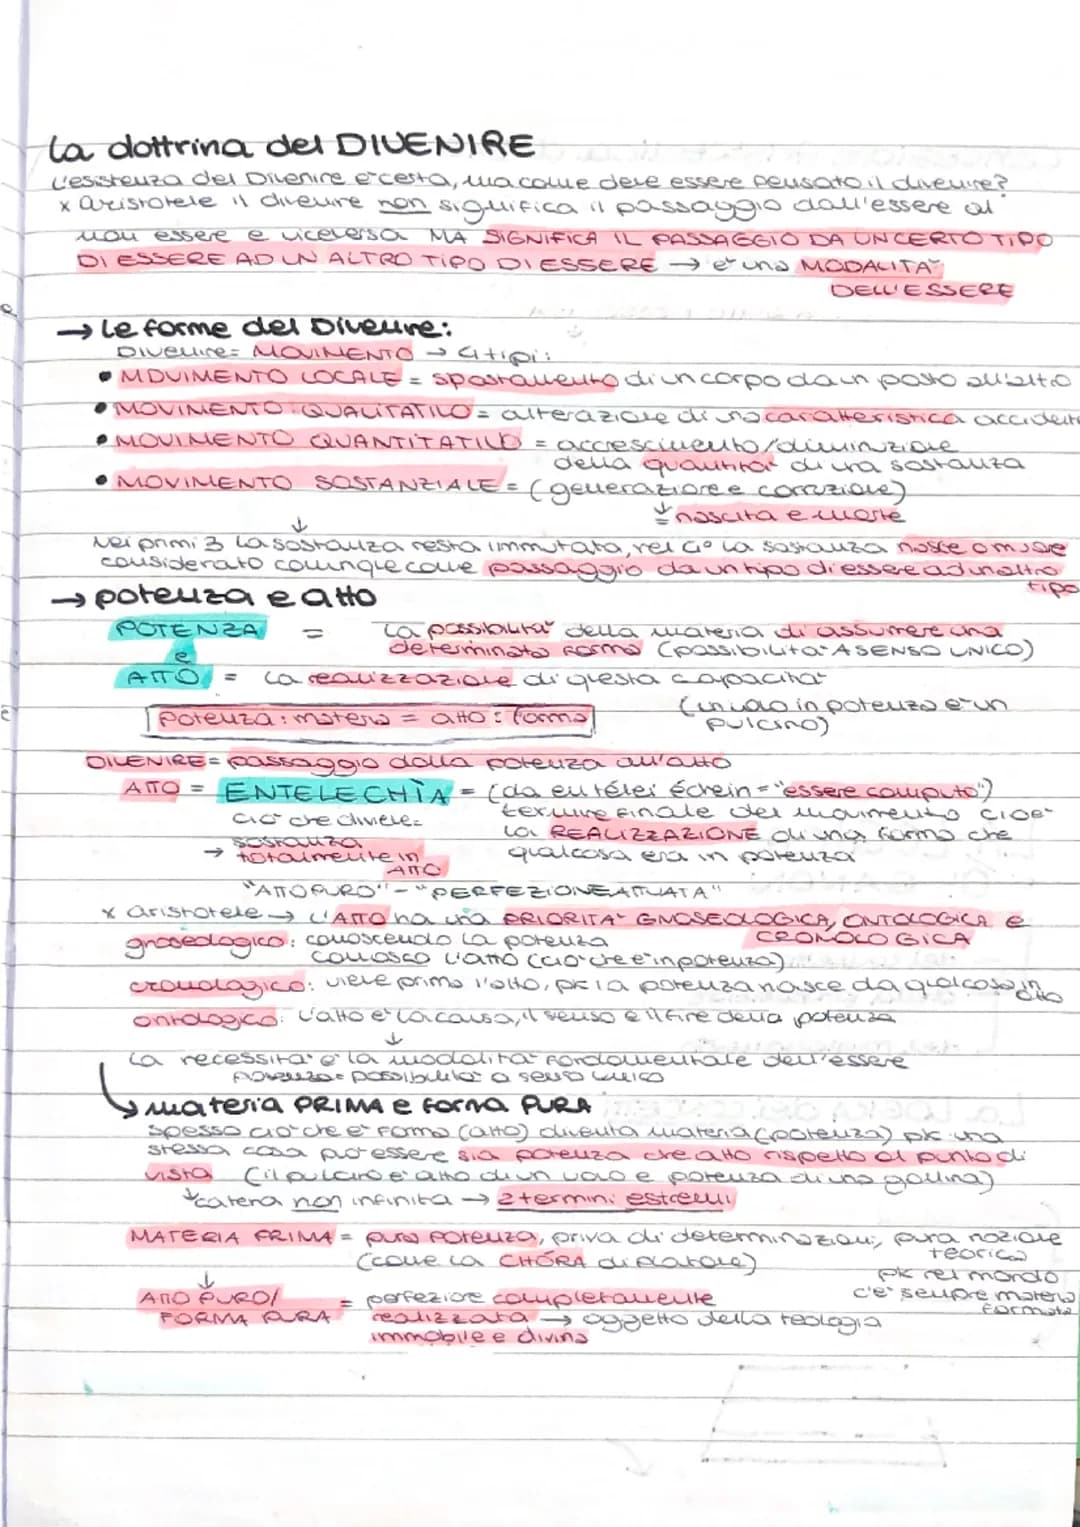 La dottrina del DIVENIRE
L'esistenza del Divenire è certa, ma come deve essere pensato il divenire?
x aristotele il divenire non significa il passaggio dall'essere al
non essere e viceversa MA SIGNIFICA IL PASSAGGIO DA UN CERTO TIPO
DI ESSERE AD UN ALTRO TIPO DI ESSERE → è una MODALITÀ
DELL'ESSERE
→ Le forme del Divenire:
Divenire = MOVIMENTO → 4 tipi:
• MOVIMENTO LOCALE = spostamento di un corpo da un posto all'altro
• MOVIMENTO QUALITATIVO = alterazione di una caratteristica accident
• MOVIMENTO QUANTITATIVO = accrescimento/diminuzione
della quantità di una sostanza
• MOVIMENTO SOSTANZIALE = (generazione e corruzione)
↓ = nascita e morte
↓
Nei primi 3 la sostanza resta immutata, nel 4° la sostanza nasce o muore
considerato comunque come passaggio da un tipo di essere ad un altro
tipo
→ potenza e atto
POTENZA = la possibilità della materia di assumere una
determinata forma (possibilità A SENSO UNICO)
e
ATTO = la realizzazione di questa capacità
(un uovo in potenza è un
pulcino)
potenza : materia = atto : forma
DIVENIRE = passaggio dalla potenza all'atto
ATTO = ENTELECHÌA = (da en télei échein = "essere compiuto")
ciò che diviene = termine finale del movimento cioè
sostanza la REALIZZAZIONE di una forma che
→ totalmente in qualcosa era in potenza
ATTO
"ATTO PURO" - "PERFEZIONE ATTUATA"
x aristotele → L'ATTO ha una PRIORITÀ GNOSEOLOGICA, ONTOLOGICA E
CRONOLOGICA
gnoseologico: conoscendo la potenza
conosco l'atto (ciò che è in potenza)
cronologico: viene prima l'atto, pk la potenza nasce da qualcosa in
atto
ontologico: l'atto è la causa, il senso e il fine della potenza
↓
La necessità è la modalità fondamentale dell'essere
potenza = possibilità a senso unico
↳ materia PRIMA e forma PURA
Spesso ciò che è forma (atto) diventa materia (potenza) pk una
stessa cosa può essere sia potenza che atto rispetto al punto di
vista (il pulcino è atto di un uovo e potenza di una gallina)
↓ catena non infinita → 2 termini estremi
MATERIA PRIMA = pura potenza, priva di determinazioni, pura nozione
teorica
(come la CHÓRA di Platone)
pk nel mondo
c'è sempre materia
formata
↓
ATTO PURO/ = perfezione completamente
FORMA PURA realizzata → oggetto della teologia
immobile e divina